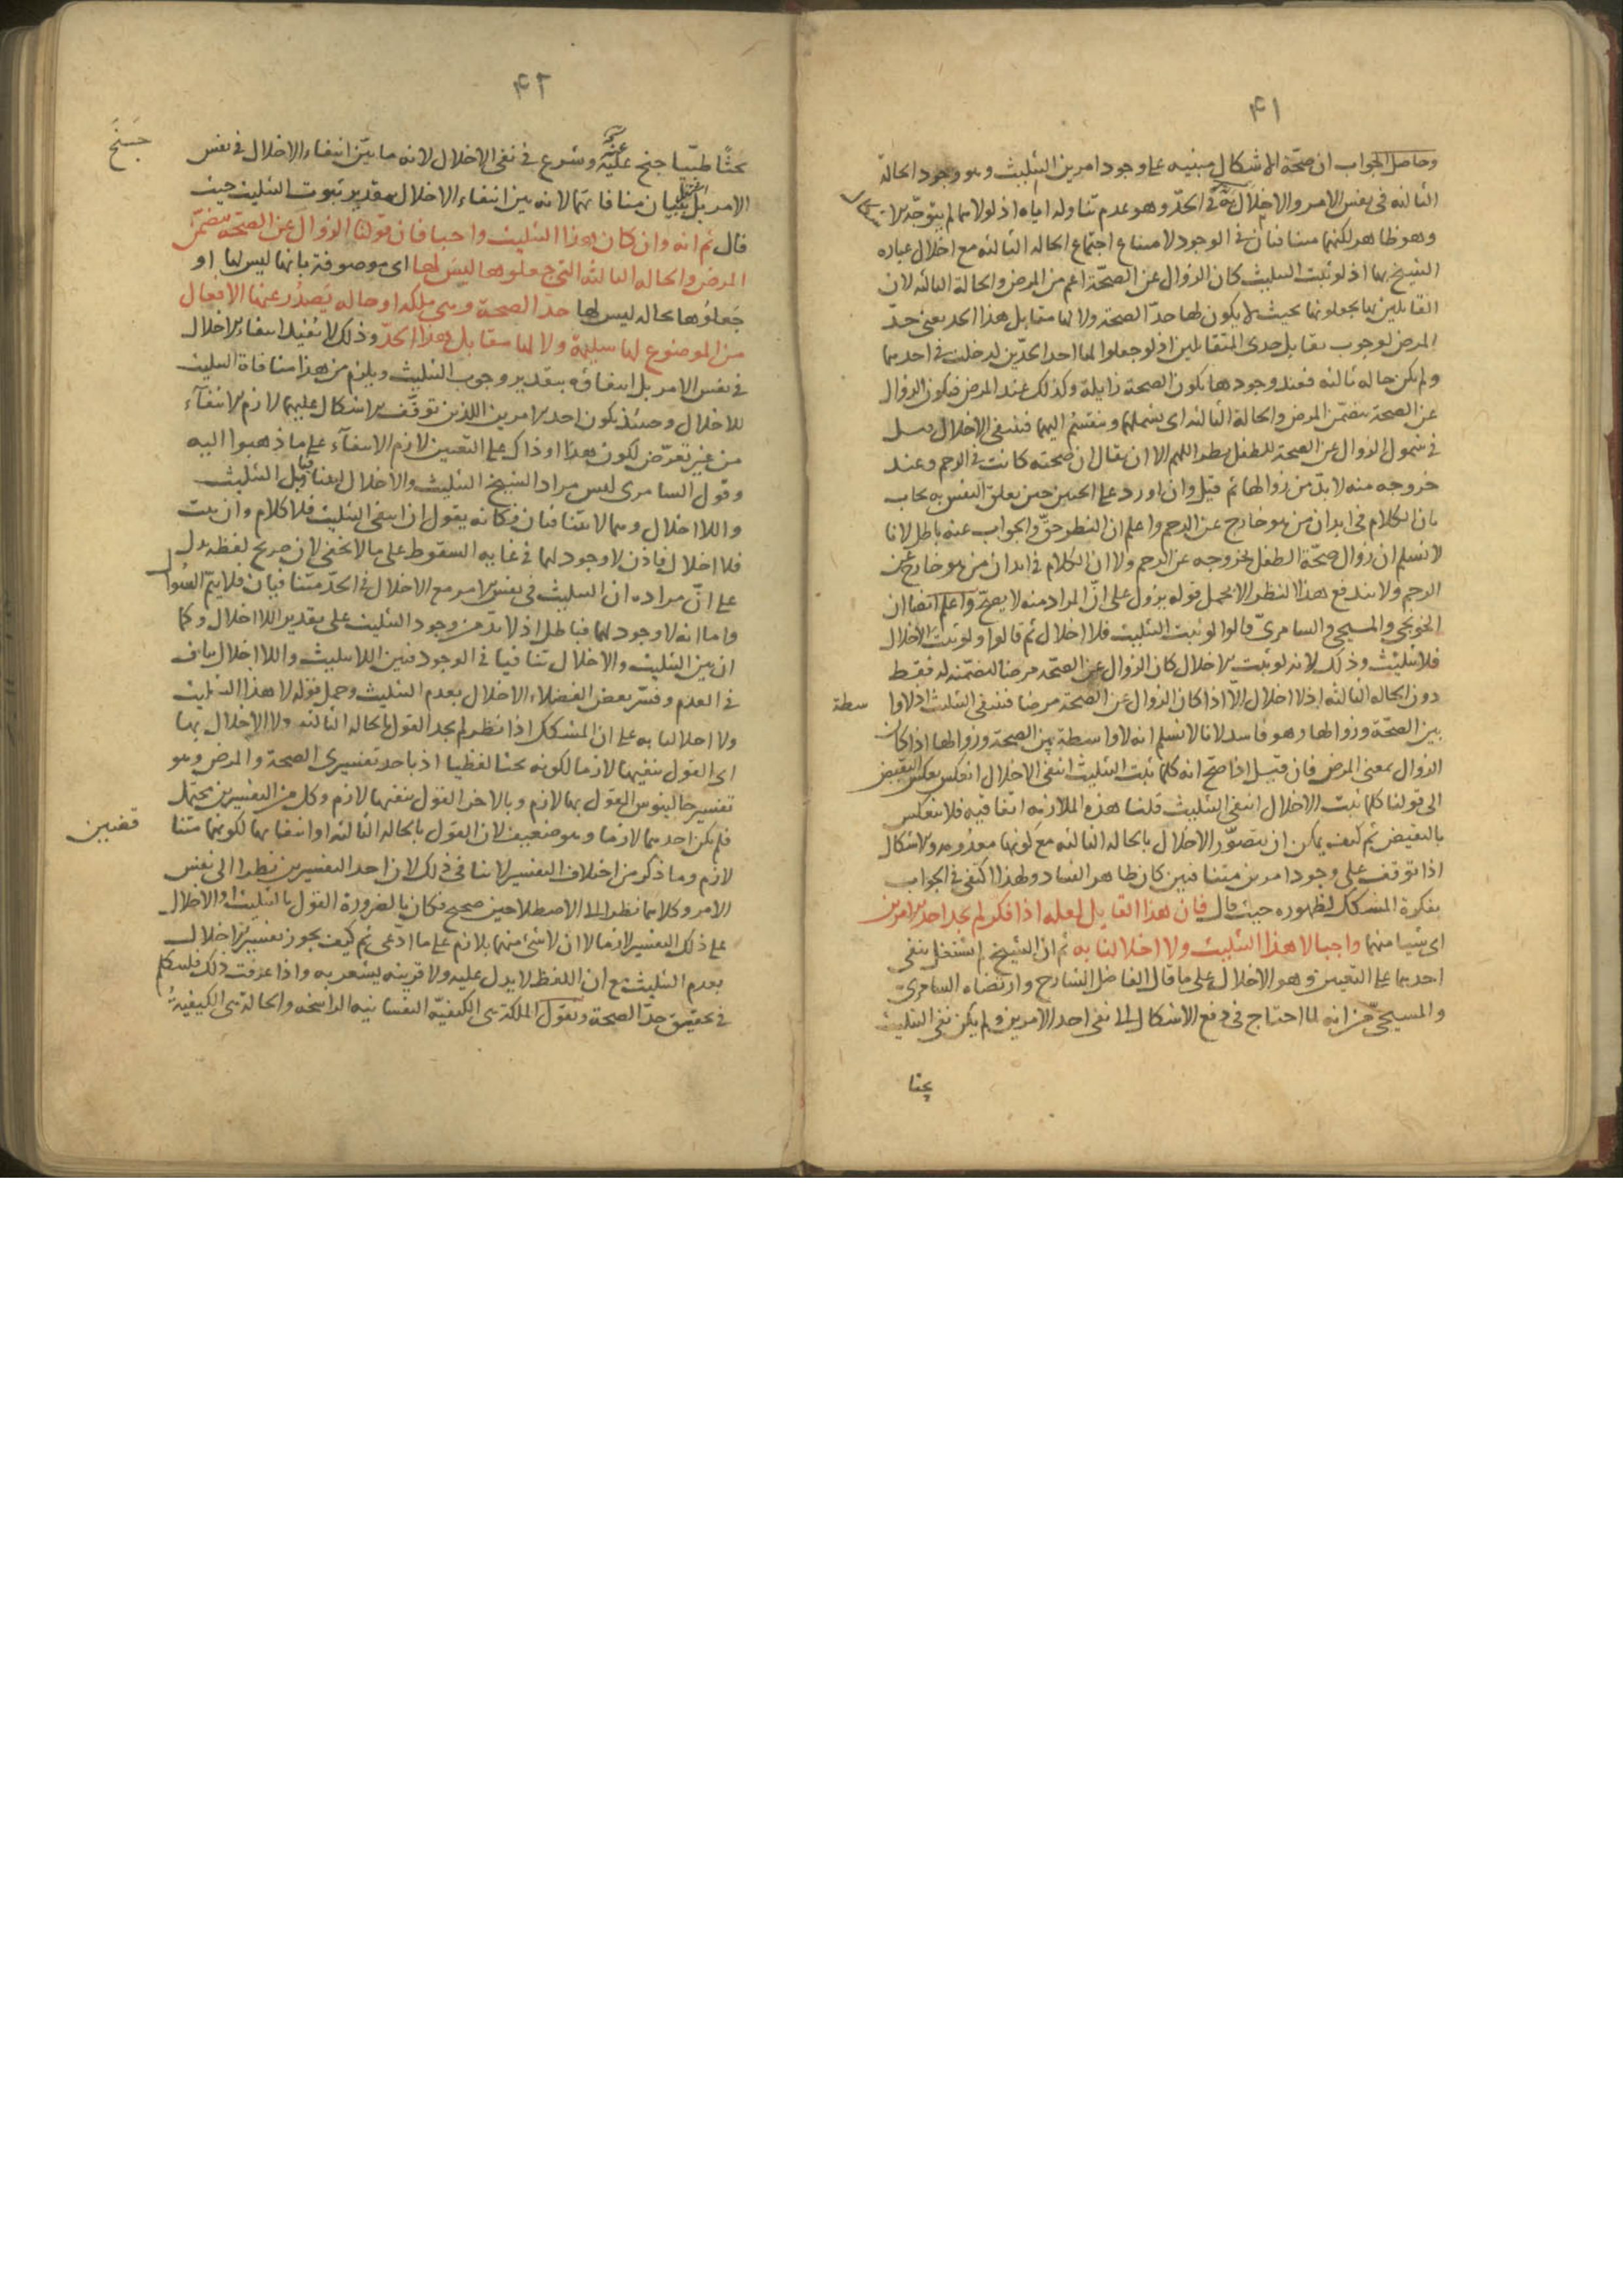 ٤١
وحاصل الجواب ان صحّة الاشكال مبنيه على وجود امرين التثليث وهو وجود الحالة
الثالثه فى نفس الامر والاخلال به فى الحدّ وهو عدم تناوله اياه اذ لولاهما لم يتوجّه الاشكال
وهو ظاهر لكنهما متنافيان فى الوجود لامتناع اجتماع الحاله الثالثه مع اخلال عباره
الشيخ بها اذ لو ثبت التثليث كان الزوال عن الصحّة اعم من المرض والحالة الثالثه لان
القائلين بها يجعلونها بحيث لا يكون لها حدّ الصحة ولا لها مقابل هذا الحد يعنى حدّ
المرض لوجوب تقابل حدى المتقابلين اذ لو جعلوا لها احد الحدّين لدخلت فى احدهما
ولم يكن حاله ثالثه فعند وجودها يكون الصحة زايلة وكذلك عند المرض فيكون الزوال
عن الصحة يتضمّن المرض والحالة الثالثه اى يشملهما وينقسم اليهما فينتفى الاخلال قيل
فى شمول الزوال عن الصحة للطفل نظر اللهم الا ان يقال ان صحته كانت فى الرحم وعند
خروجه منه لا بدّ من زوالها ثم قيل وان اورد على الجنين حين تعلق النفس به يجاب
بان الكلام فى ابدان من هو خارج عن الرحم واعلم ان النظر حقّ والجواب عنه باطل لانا
لا نسلم ان زوال صحّة الطفل بخروجه عن الرحم ولا ان الكلام فى ابدان من هو خارج عن
الرحم ولا يندفع هذا النظر الا بحمل قوله يزول على انّ المراد منه لا يصحّ واعلم ايضا ان
الخونجى والمسيحى والسامرىّ قالوا لو ثبت التثليث فلا اخلال ثم قالوا ولو ثبت الاخلال
فلا تثليث وذلك لانه لو ثبت الاخلال كان الزوال عن الصحّة مرضا لتضمنه له فقط
دون الحاله الثالثه اذ لا اخلال الّا اذا كان الزوال عن الصحة مرضا فينتفى التثليث اذ لا وا
سطة
بين الصحّة وزوالها وهو فاسد لانا لا نسلم انه لا واسطة بين الصحة وزوالها اذا كان
الزوال بمعنى المرض فان قيل اذا صحّ انه كلما ثبت التثليث انتفى الاخلال انعكس بعكس النقيض
الى قولنا كلما ثبت الاخلال انتفى التثليث قلنا هذه الملازمه اتفاقيه فلا تنعكس
بالنقيض ثم كيف يمكن ان يتصوّر الاخلال بالحاله الثالثه مع كونها معدومه والاشكال
اذا توقف على وجود امرين متنافيين كان ظاهر الفساد ولهذا اكتفى فى الجواب
بفكرة المشكك لظهوره حيث قال فان هذا القايل لعله اذا فكر لم يجد احد الامرين
اى شيا منهما واجبا لا هذا التثليث ولا اخلالنا به ثم ان الشيخ لم يشتغل بنفى
احدهما على التعيين وهو الاخلال على ما قال الفاضل الشارح وارتضاه السامرىّ
والمسيحىّ من انه لما احتاج فى دفع الاشكال الى نفى احد الامرين ولم يكن نفى التثليث
بحثا
٤٢
بحثًا طبّيا جنح عنه وشرع فى نفى الاخلال لانه ما بيّن انتفاء الاخلال فى نفس
جَنَحَ
الامر بل اشتغل ببيان منافاتهما لانه بين انتفاء الاخلال بتقدير ثبوت التثليث حيث
قال ثم انه وان كان هذا التثليث واجبا فان قولنا الزوال عن الصحّه يتضمّن
المرض والحاله الثالثه التى جعلوها ليس لها اى موصوفة بانها ليس لها او
جَعلوُها بحاله ليس لها حدّ الصحة وهى ملكه او حاله يَصدُر عنها الافعال
من الموضوع لها سليمة ولا لها مقابل هذا الحدّ وذلك لا يُفيد انتفاء الاخلال
فى نفس الامر بل انتفاؤه بتقدير وجوب التثليث ويلزم من هذا منافاة التثليث
للاخلال وحينئذ يكون احد الامرين اللذين توقّف الاشكال عليهما لازم الانتفآء
من غير تعرّض لكون هذا او ذاك على التعيين لازم الانتفآء على ما ذهبوا اليه
وقول السامرى ليس مراد الشيخ التثليث والاخلال بل التثليث
واللا اخلال وهما لا يتنافيان فكانه يقول ان انتفى التثليث فلا كلام وان ثبت
فلا اخلال فاذن لا وجود لهما فى غايه السقوط على ما لا يخفى لان صريح لفظه يدل
على انّ مراده ان التثليث فى نفس الامر مع الاخلال فى الحدّ متنافيان فلا يتم
واما انه لا وجود لهما فباطل اذ لا بدّ من وجود التثليث على تقدير اللا اخلال وكما
ان بين التثليث والاخلال تنافيا فى الوجود فبين اللا تثليث واللا اخلال تناف
فى العدم وفسّر بعض الفضلاء الاخلال بعدم التثليث وحمل قوله لا هذا التثليث
ولا اخلالنا به على ان المشكك اذا نظر لم يجد القول بالحاله الثالثه ولا الاخلال بها
اى القول بنفيها لازما لكونه بحثا لفظيا اذ باحد تفسيرى الصحة والمرض وهو
تفسير جالينوس القول بها لازم وبالاخر القول بنفيها لازم وكل من التفسيرين محتمل
فلم يكن احدهما لازما وهو ضعيف لان القول بالحاله الثالثه او انتفائها لكونهما متنا
قضيين
لازم وما ذكر من اختلاف التفسير لا ينافى ذلك لان احد التفسيرين نظرا الى نفس
الامر وكلاهما نظرا الى الاصطلاحين صحيح فكان بالضرورة القول بالتثليث او الاخلال
على ذلك التفسير لازما لا ان لا شئ منهما بلازم على ما ادعى ثم كيف يجوز تفسير الاخلال
بعدم التثليث مع ان اللفظ لا يدل عليه ولا قرينه يشعر به واذا عرفت ذلك فلنتكلم
فى تحقيق حدّ الصحة ونقول الملكة هى الكيفيّه النفسانيه الراسخه والحالة هى الكيفيّة